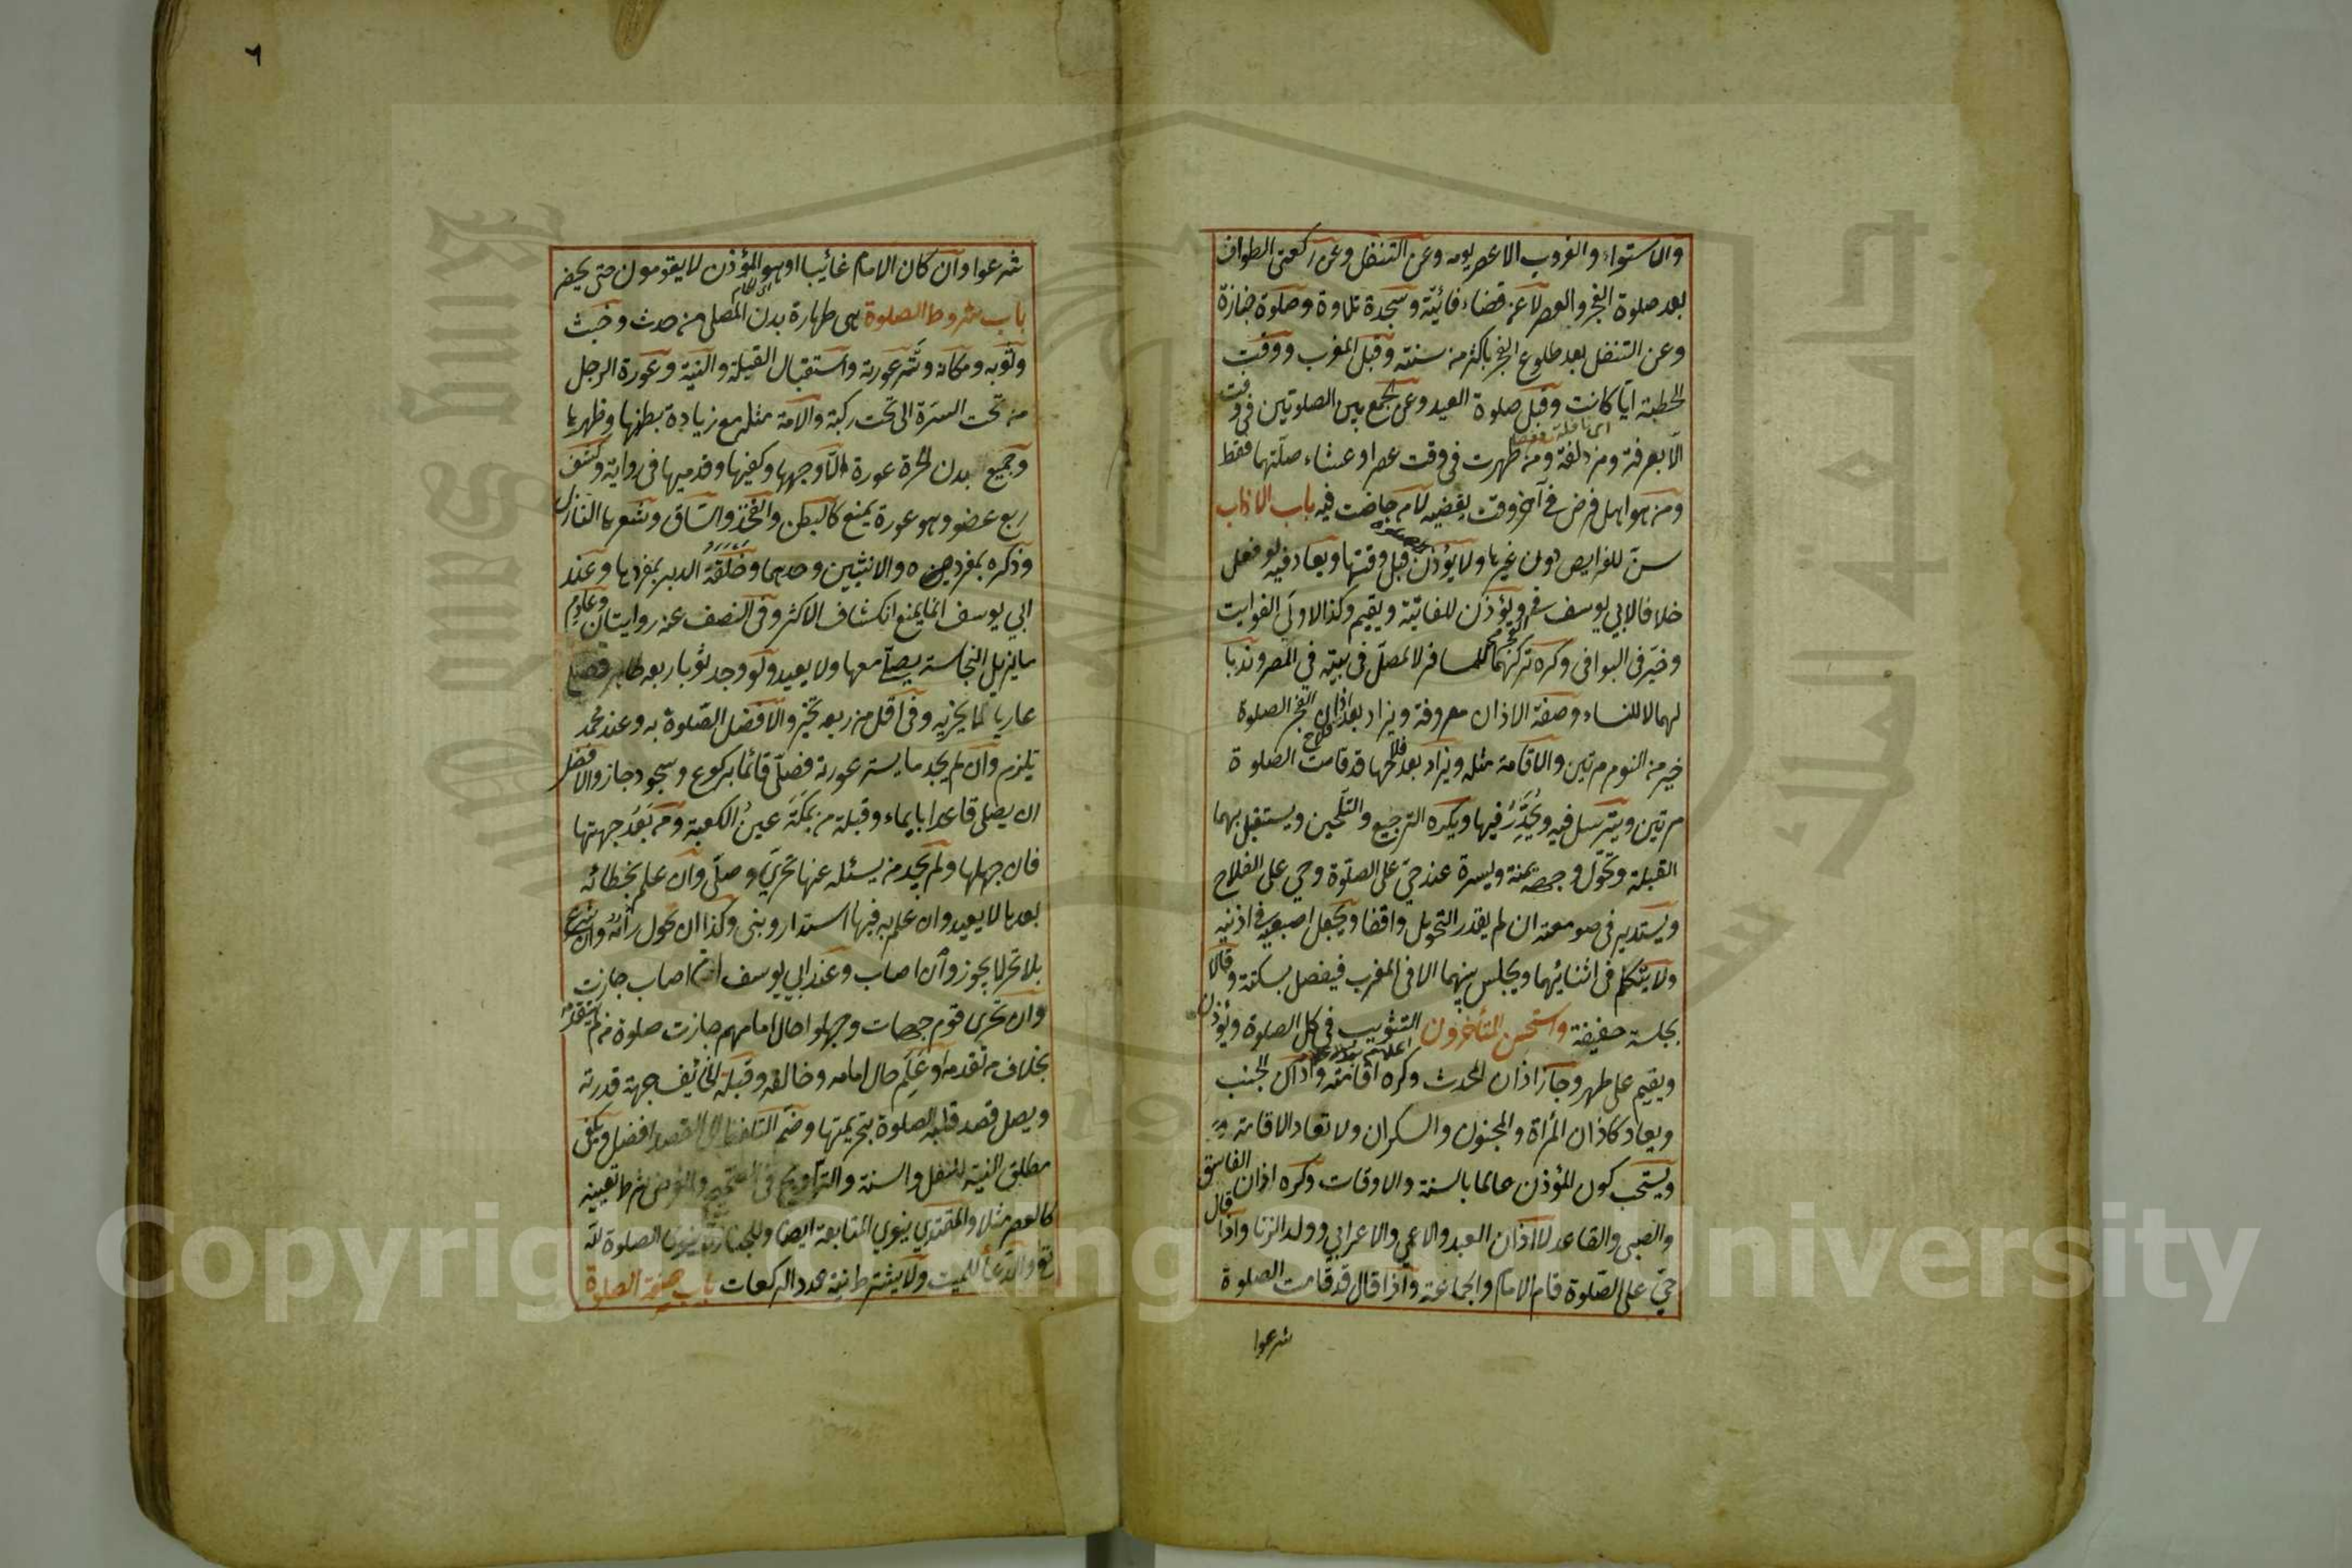 والاستواء والغروب الا عصر يومه وعن التنفل وعن ركعتي الطواف
بعد صلوة الفجر والعصر لا عن قضاء فائتة وسجدة تلاوة وصلوة جنازة
وعن التنفل بعد طلوع الفجر باكثر من سنته وقبل المغرب ووقت
الخطبة ايا كانت وقبل صلوة العيد وعن الجمع بين الصلوتين في وقت
الا بعرفة ومزدلفة ومن طهرت في وقت عصر او عشاء صلتهما فقط
ومن هو اهل فرض في آخر وقت يقضيه لا من حاضت فيه باب الاذان
سن للفرايض دون غيرها ولا يؤذن قبل وقتها ويعاد فيه لو فعل
خلافا لابي يوسف في ويؤذن للفائتة ويقيم وكذا لاولى الفوايت
وخير في البواقي وكره تركهما للمسافر لا لمصل في بيته في المصر وندبا
لهما لا للنساء وصفة الاذان معروفة ويزاد بعد اذان الفجر الصلوة
خير من النوم مرتين والاقامة مثله ويزاد بعد فلاحها قد قامت الصلوة
مرتين ويترسل فيه ويحدر فيها ويكره الترجيع والتلحين ويستقبل بهما
القبلة وتحول وجهه يمنة ويسرة عند حي على الصلوة وحي على الفلاح
ويستدير في صومعته ان لم يقدر التحويل واقفا ويجعل اصبعيه في اذنيه
ولا يتكلم في اثنائهما ويجلس بينهما الا في المغرب فيفصل بسكتة وقالا
بجلسة خفيفة واستحسن المتأخرون التثويب في كل الصلوة ويؤذن
ويقيم على طهر وجاز اذان المحدث وكره اقامته واذان الجنب
ويعاد كاذان المرأة والمجنون والسكران ولا تعاد الاقامة
ويستحب كون المؤذن عالما بالسنة والاوقات وكره اذان الفاسق
والصبي والقاعد لا اذان العبد والاعمى والاعرابي وولد الزنا واذا قال
حي على الصلوة قام الامام والجماعة واذا قال قد قامت الصلوة
شرعوا
٦
شرعوا وان كان الامام غائبا او هو المؤذن لا يقومون حتى يحضر
باب شروط الصلوة هي طهارة بدن المصلي من حدث وخبث
وثوبه ومكانه وستر عورته واستقبال القبلة والنية وعورة الرجل
من تحت السرة الى تحت ركبته والامة مثله مع زيادة بطنها وظهرها
وجميع بدن الحرة عورة الا وجهها وكفيها وقدميها في رواية وكشف
ربع عضو وهو عورة يمنع كالبطن والفخذ والساق وشعرها النازل
وذكره بمفرده والانثيين وحدهما وحلقة الدبر بمفردها وعند
ابي يوسف انما يمنع انكشاف الاكثر وفي النصف عنه روايتان وعادم
ما يزيل النجاسة يصلي معها ولا يعيد ولو وجد ثوبا ربعه طاهر فصلى
عاريا لا يجزيه وفي اقل من ربعه يخير والافضل الصلوة به وعند محمد
تلزم وان لم يجد ما يستر عورته فصلى قائما بركوع وسجود جاز والافضل
ان يصلي قاعدا بايماء وقبلة من بمكة عين الكعبة ومن بعد جهتها
فان جهلها ولم يجد من يسئله عنها تحرى وصلى وان علم بخطائه
بعدها لا يعيد وان علم به فيها استدار وبنى وكذا ان تحول رأيه وان شرع
بلا تحر لا يجوز وان اصاب وعند ابي يوسف ان اصاب جازت
وان تحرى قوم جهات وجهلوا حال امامهم جازت صلوة من لم يتقدمه
بخلاف من تقدمه او علم حال امامه وخالفه وقبلة الخائف جهة قدرته
ويصل قصد قلبه الصلوة بتحريمتها وضم التلفظ الى القصد افضل ويكفي
مطلق النية للنفل والسنة والتراويح في الصحيح وللفرض شرط تعيينه
كالعصر مثلا والمقتدي ينوي المتابعة ايضا وللجنازة ينوي الصلوة لله
تع والدعاء للميت ولا يشترط نية عدد الركعات باب صفة الصلوة
Copyright © King Saud University